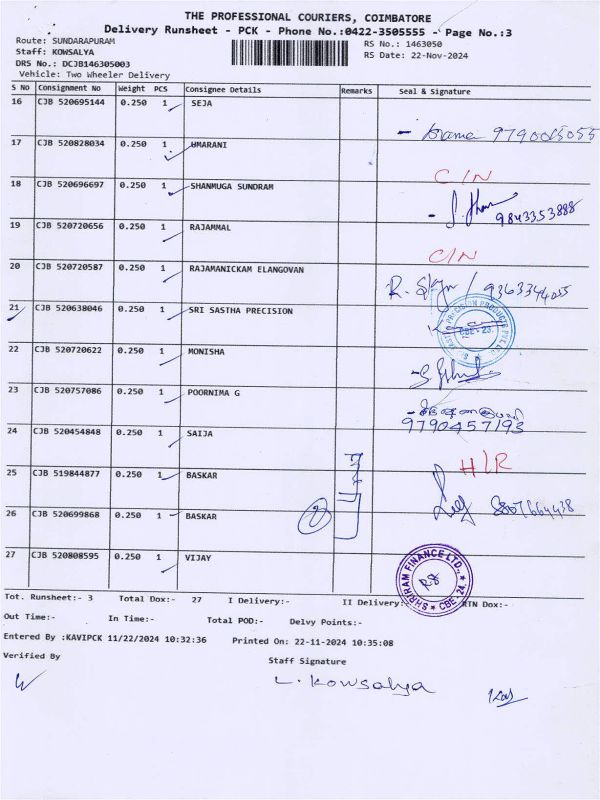 THE PROFESSIONAL COURIERS, COIMBATORE
Delivery Runsheet - PCK - Phone No.:0422-3505555 - Page No.:3
Route: SUNDARAPURAM
RS No.: 1463050
Staff: KOWSALYA
RS Date: 22-Nov-2024
DRS No.: DCJB146305003
Vehicle: Two Wheeler Delivery
S No Consignment No Weight PCS Consignee Details Remarks Seal & Signature
16 CJB 520695144 0.250 1 SEJA
9790065055
17 CJB 520828034 0.250 1 UMARANI
C/N
18 CJB 520696697 0.250 1 SHANMUGA SUNDRAM
9843353888
19 CJB 520720656 0.250 1 RAJAMMAL
C/N
20 CJB 520720587 0.250 1 RAJAMANICKAM ELANGOVAN
R.
21 CJB 520638046 0.250 1 SRI SASTHA PRECISION
CBE - 23.
22 CJB 520720622 0.250 1 MONISHA
23 CJB 520757086 0.250 1 POORNIMA G
9790457193
24 CJB 520454848 0.250 1 SAIJA
H/R
25 CJB 519844877 0.250 1 BASKAR
26 CJB 520699868 0.250 1 BASKAR
2
27 CJB 520808595 0.250 1 VIJAY
SHRIRAM FINANCE LTD., ★ CBE - 24. ★
Tot. Runsheet:- 3 Total Dox:- 27 I Delivery:- II Delivery: RTN Dox:-
Out Time:- In Time:- Total POD:- Delvy Points:-
Entered By :KAVIPCK 11/22/2024 10:32:36 Printed On: 22-11-2024 10:35:08
Verified By Staff Signature
L. Kowsalya